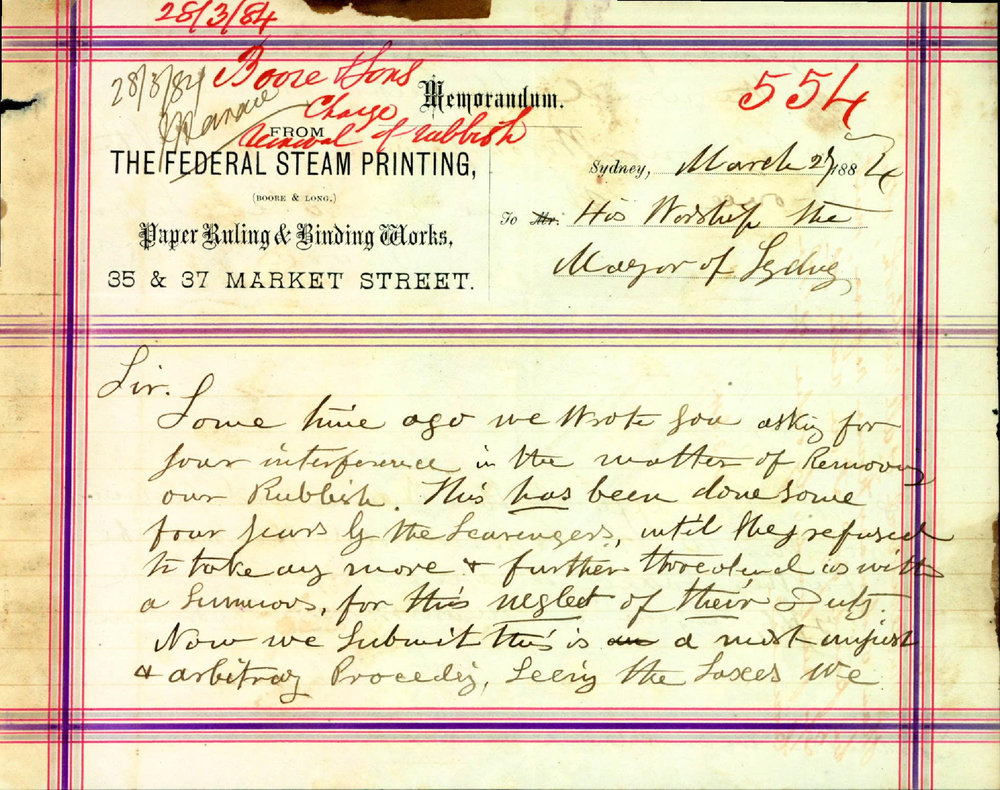 28/3/84
Boore & Sons
Charge
removal of rubbish
28/3/84
554
Memorandum.
FROM
THE FEDERAL STEAM PRINTING,
(BOORE & LONG.)
Paper Ruling & Binding Works,
35 & 37 MARKET STREET.
Sydney, March 27 1884
To Mr. His Worship the
Mayor of Sydney
Sir.
Some time ago we wrote you asking for
your interference in the matter of Removing
our Rubbish. This has been done some
four years by the Scavengers, until they refused
to take any more & further threatened us with
a Summons, for this neglect of their Duty.
Now we Submit this is an a most unjust
& arbitray Proceedig, Seeing the Taxes We